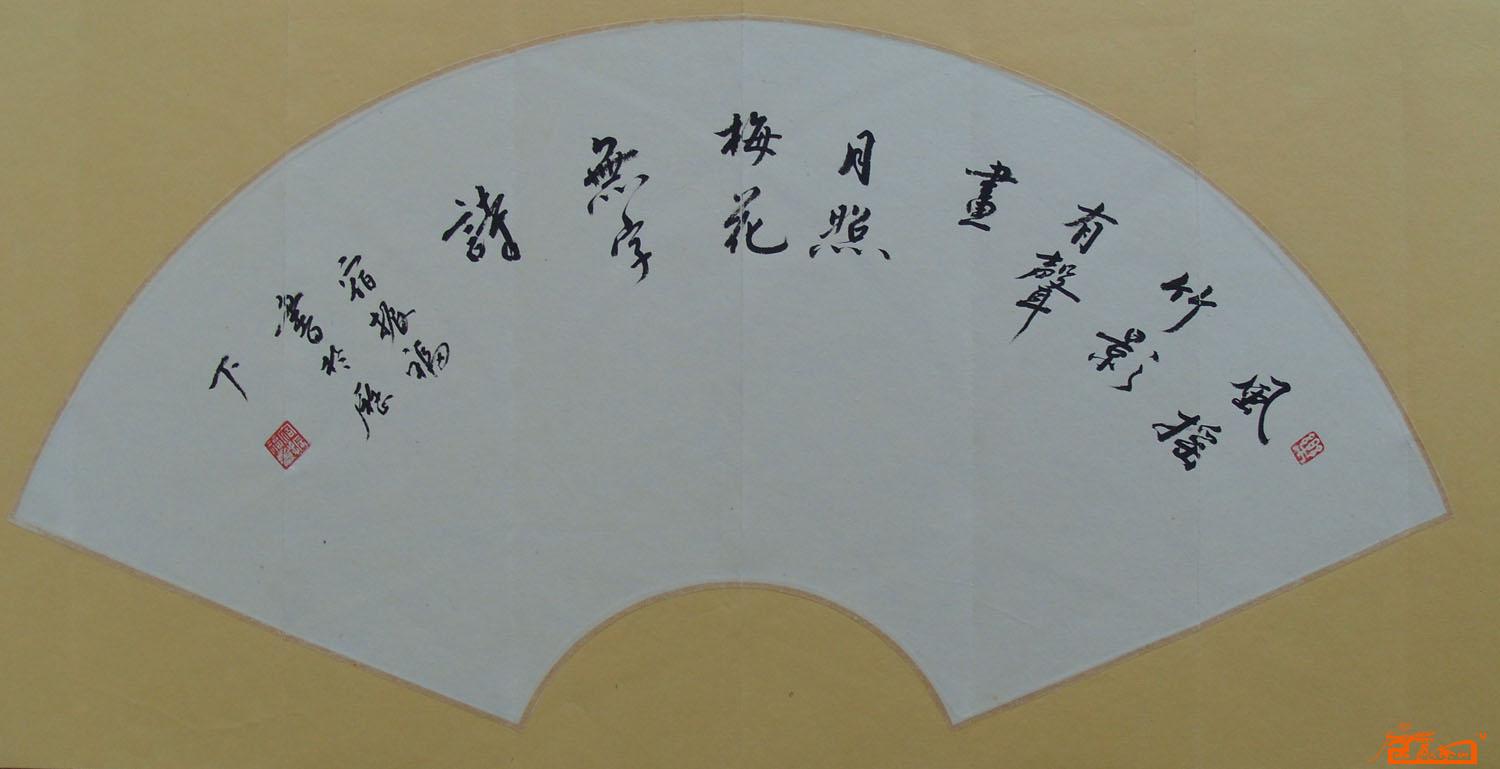 風摇
竹影
有聲
畫
月照
梅花
無字
詩
宿振福
書於歷
下